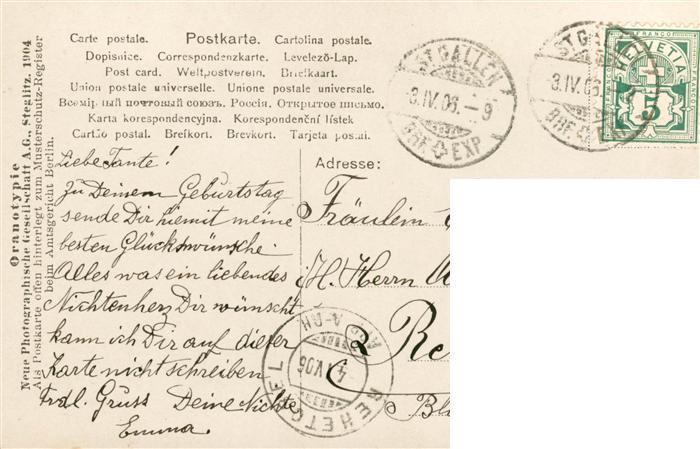 Carte postale. Postkarte. Cartolina postale.
Dopisnice. Correspondenzkarte. Levelező-Lap.
Post card. Weltpostverein. Briefkaart.
Union postale universelle. Unione postale universale.
Всемірный почтовый союзъ. Россія. Открытое письмо.
Karta korespondencyjna. Korespondenční lístek
Cartão postal. Brefkort. Brevkort. Tarjeta postal.
Oranotypie
Neue Photographische Gesellschaft A.G. Steglitz. 1904
Als Postkarte offen hinterlegt zum Musterschutz-Register
beim Amtsgericht Berlin.
Liebe Tante!
Zu Deinem Geburtstag
sende Dir hiemit meine
besten Glückswünsche.
Alles was ein liebendes
Nichtenherz Dir wünscht
kann ich Dir auf dieser
Karte nicht schreiben
Frdl. Gruss Deine Nichte
Emma.
Adresse:
Fräulein
H. Herrn
Re
Bl
ST GALLEN
3.IV.06.-9
BRF. EXP.
ST GALL
3.IV.06.-
BRF. EX
FRANCO
HELVETIA
5
REHETOBEL
4.IV.06